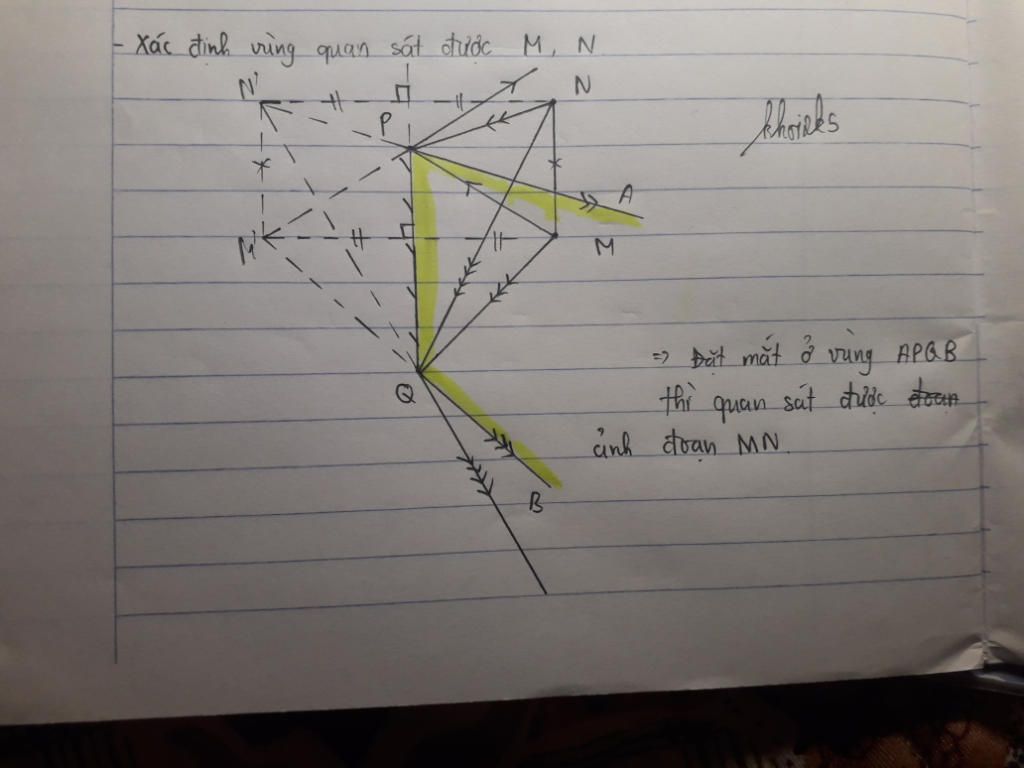 - Xác định vùng quan sát được M, N
N'
N
P
A
M'
M
Q
B
=> Đặt mắt ở vùng APQB
thì quan sát được đoạn
ảnh đoạn MN.